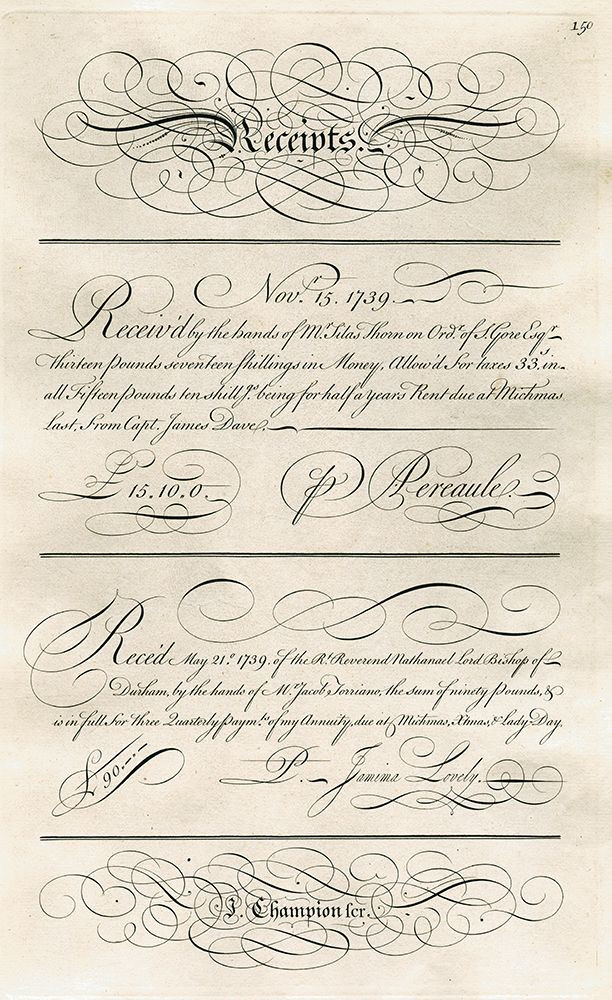 150
Receipts.
Novr. 15. 1739.
Receiv'd by the hands of Mr. Silas Thorn on Ordr. of S. Gore Esqr.
Thirteen Pounds seventeen shillings in Money, Allow'd For taxes 33s. in
all Fifteen Pounds ten shillgs. being for half a years Rent due at Michmas
last, From Capt. James Dave.
£ 15.10.0.
P. Pereaule.
Receed May 21. 1739. of the Rt. Reverend Nathanael Lord Bishop of
Durham, by the hands of Mr. Jacob Torriano, the sum of ninety Pounds, &
is in full For three Quarterly Paymts. of my Annuity, due at Michmas, Xtmas, & Lady-Day,
£ 90.-.-
P. Jamima Lovely.
J. Champion scr.